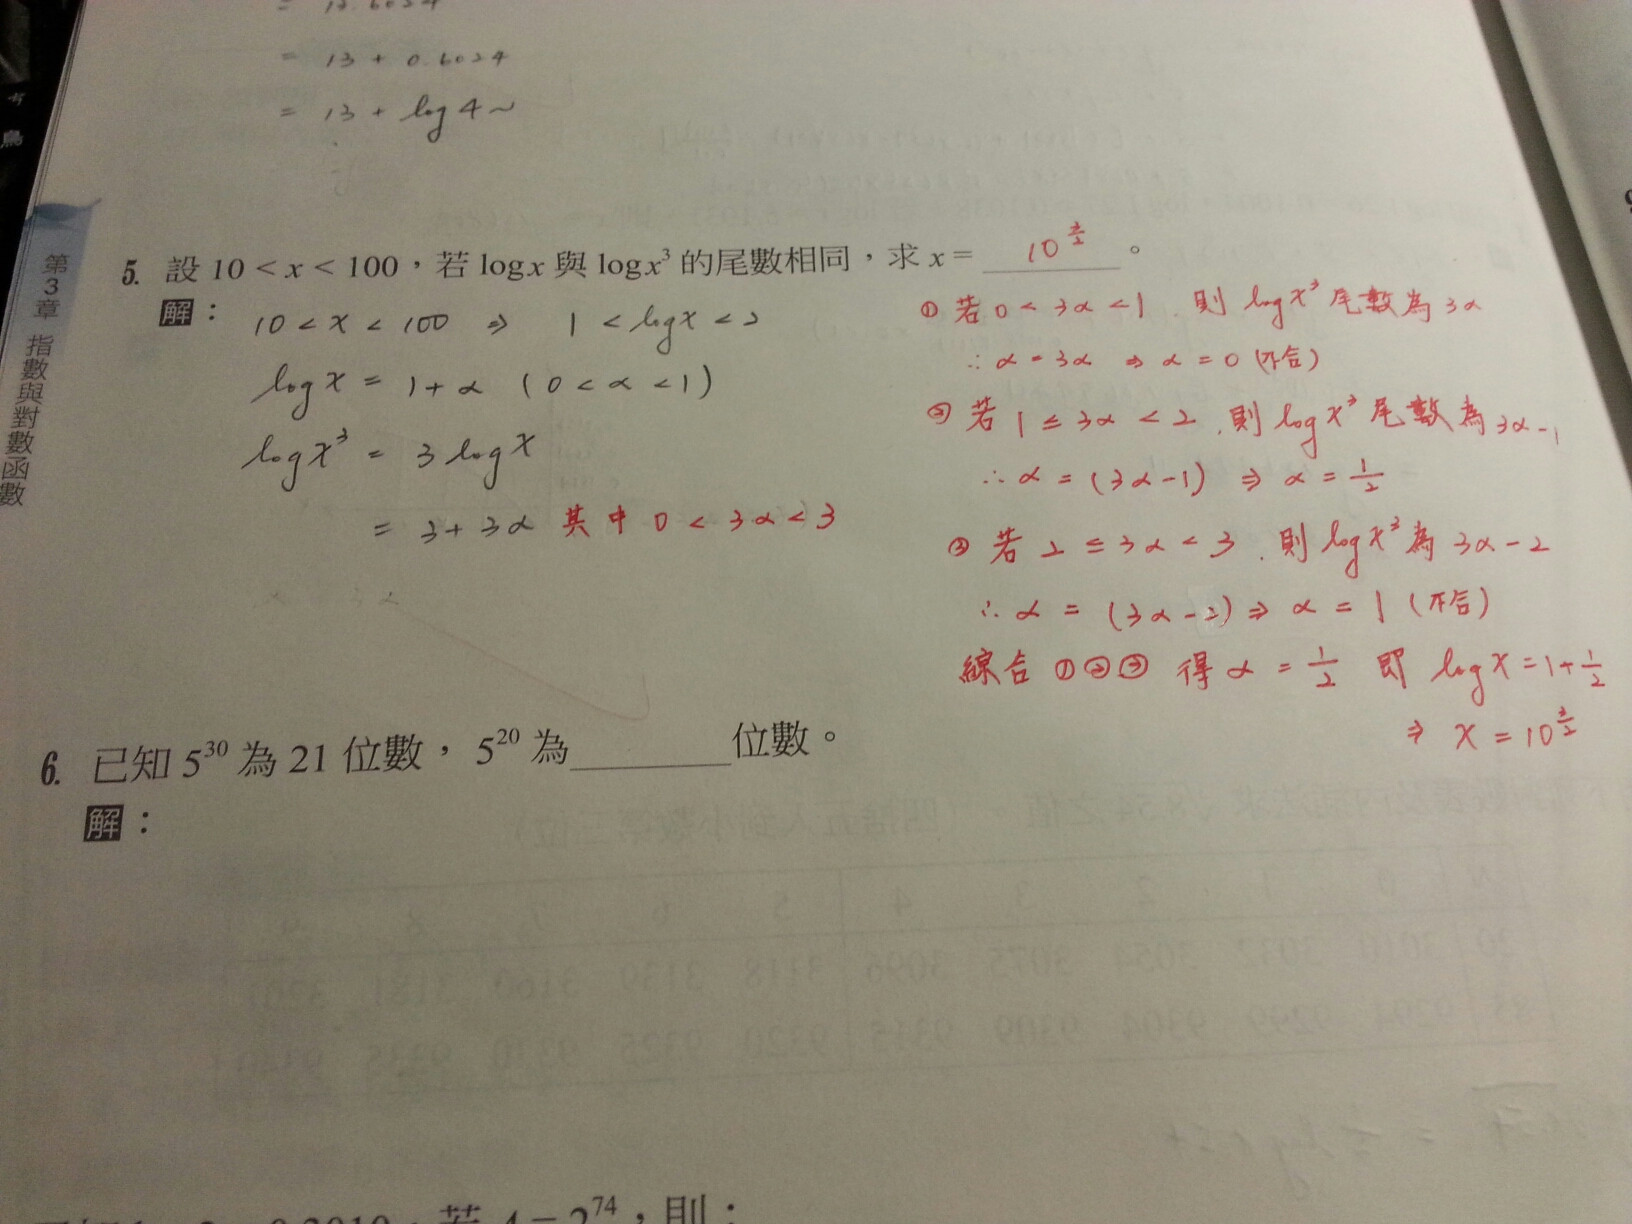 = 13.6024
= 13 + 0.6024
= 13 + log 4~
第3章 指數與對數函數
5. 設 10 < x < 100，若 logx 與 logx³ 的尾數相同，求 x = 10^(3/2) 。
解：
10 < x < 100 ⇒ 1 < log x < 2
log x = 1 + α ( 0 < α < 1 )
log x³ = 3 log x
= 3 + 3α 其中 0 < 3α < 3
① 若 0 < 3α < 1 . 則 log x³ 尾數為 3α
∴ α = 3α ⇒ α = 0 (不合)
② 若 1 ≤ 3α < 2 . 則 log x³ 尾數為 3α-1
∴ α = (3α-1) ⇒ α = 1/2
③ 若 2 ≤ 3α < 3 . 則 log x³ 為 3α-2
∴ α = (3α-2) ⇒ α = 1 (不合)
綜合 ①②③ 得 α = 1/2 即 log x = 1+1/2
⇒ x = 10^(3/2)
6. 已知 5³⁰ 為 21 位數，5²⁰ 為 位數。
解：
若 A = 2⁷⁴，則：